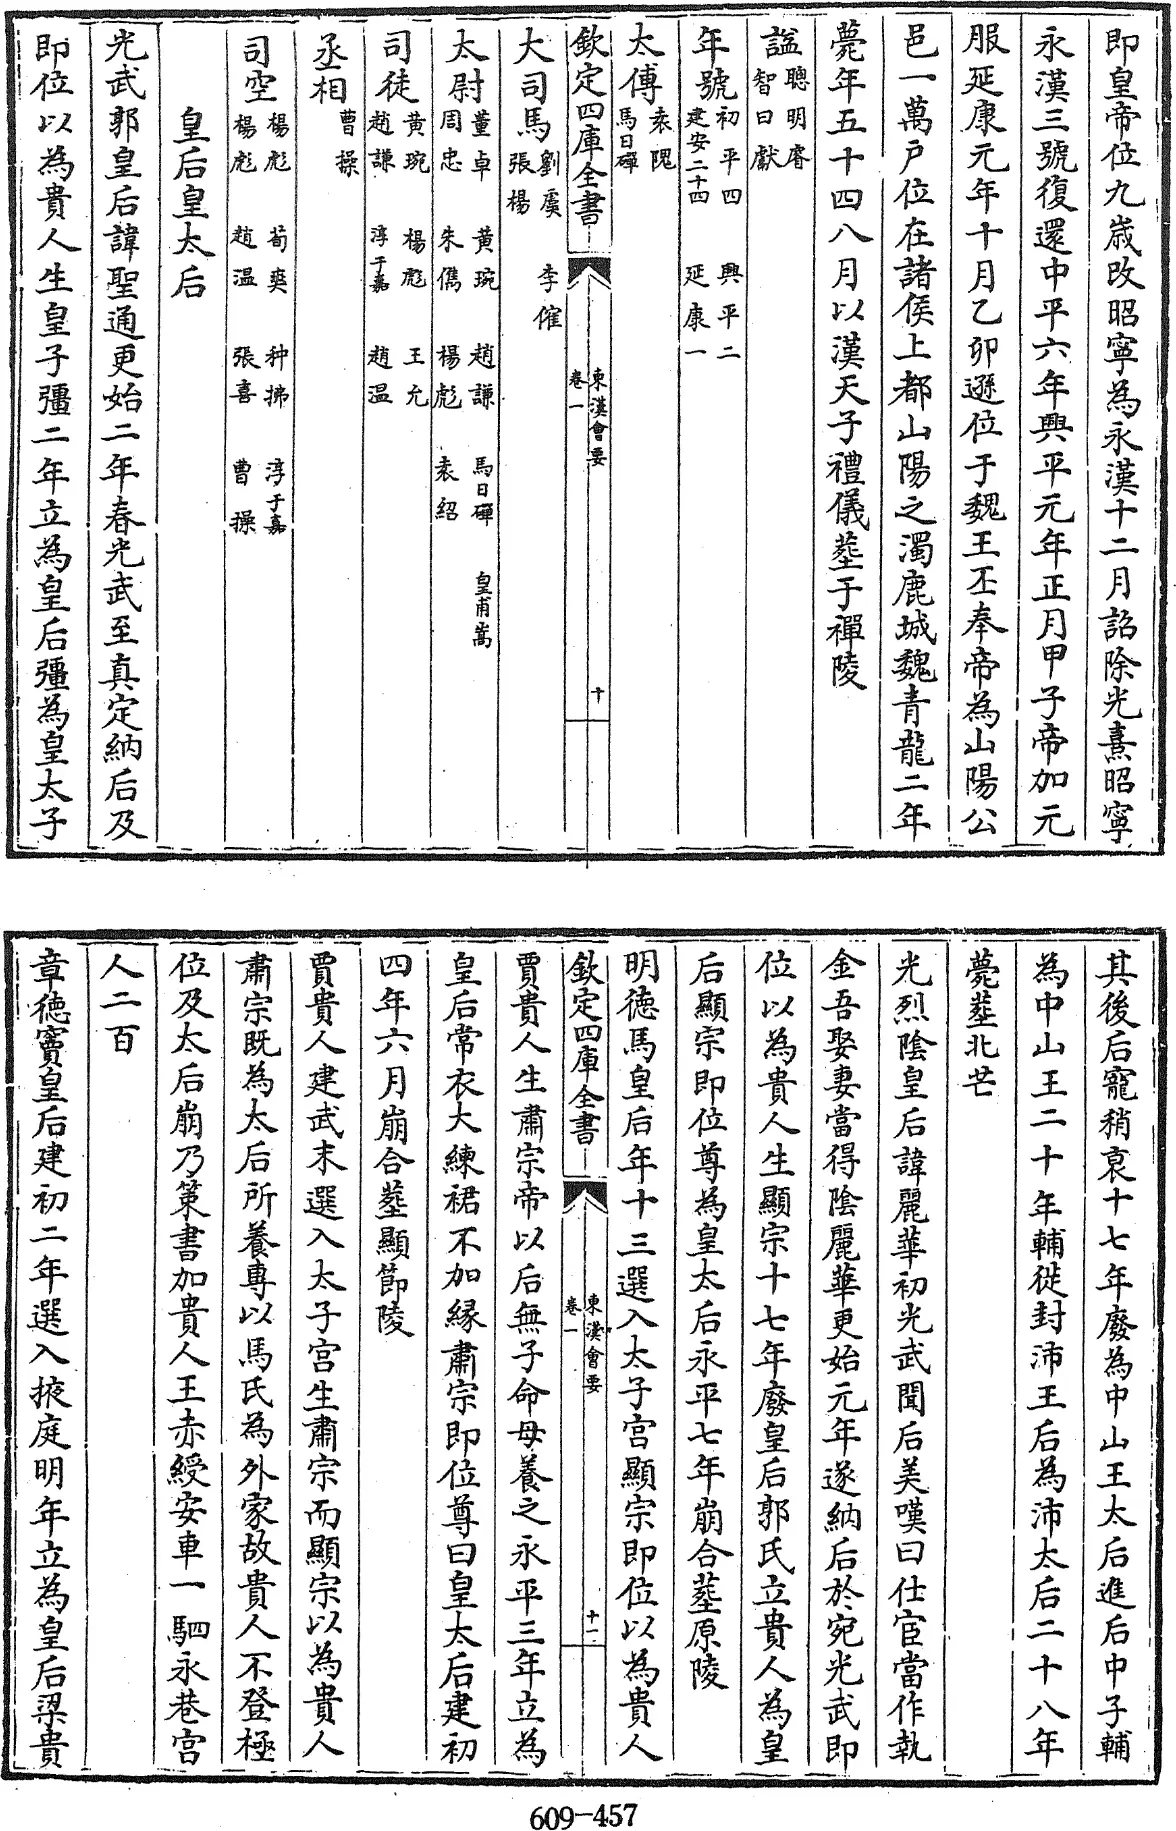 即皇帝位九歳改昭寧為永漢十二月詔除光熹昭寧
永漢三號復還中平六年興平元年正月甲子帝加元
服延康元年十月乙卯遜位于魏王丕奉帝為山陽公
邑一萬户位在諸侯上都山陽之濁鹿城魏青龍二年
薨年五十四八月以漢天子禮儀塟于禪陵
諡聰明睿
智曰獻
年號初平四 興平二
建安二十四 延康一
太傅袁隗
馬日磾
欽定四庫全書
東漢會要
卷一
十
大司馬劉虞 李傕
張楊
太尉董卓 黄琬 趙謙 馬日磾 皇甫嵩
周忠 朱儁 楊彪 袁紹
司徒黄琬 楊彪 王允
趙謙 淳于嘉 趙温
丞相曹操
司空楊彪 荀爽 种拂 淳于嘉
楊彪 趙温 張喜 曹操
皇后皇太后
光武郭皇后諱聖通更始二年春光武至真定納后及
即位以為貴人生皇子彊二年立為皇后彊為皇太子
其後后寵稍衰十七年廢為中山王太后進后中子輔
為中山王二十年輔徙封沛王后為沛太后二十八年
薨塟北芒
光烈陰皇后諱麗華初光武聞后美嘆曰仕宦當作執
金吾娶妻當得陰麗華更始元年遂納后於宛光武即
位以為貴人生顯宗十七年廢皇后郭氏立貴人為皇
后顯宗即位尊為皇太后永平七年崩合塟原陵
明德馬皇后年十三選入太子宫顯宗即位以為貴人
欽定四庫全書
東漢會要
卷一
十一
賈貴人生肅宗帝以后無子命母養之永平三年立為
皇后常衣大練裙不加緣肅宗即位尊曰皇太后建初
四年六月崩合塟顯節陵
賈貴人建武末選入太子宫生肅宗而顯宗以為貴人
肅宗既為太后所養專以馬氏為外家故貴人不登極
位及太后崩乃策書加貴人王赤綬安車一駟永巷宫
人二百
章德竇皇后建初二年選入掖庭明年立為皇后梁貴
609-457